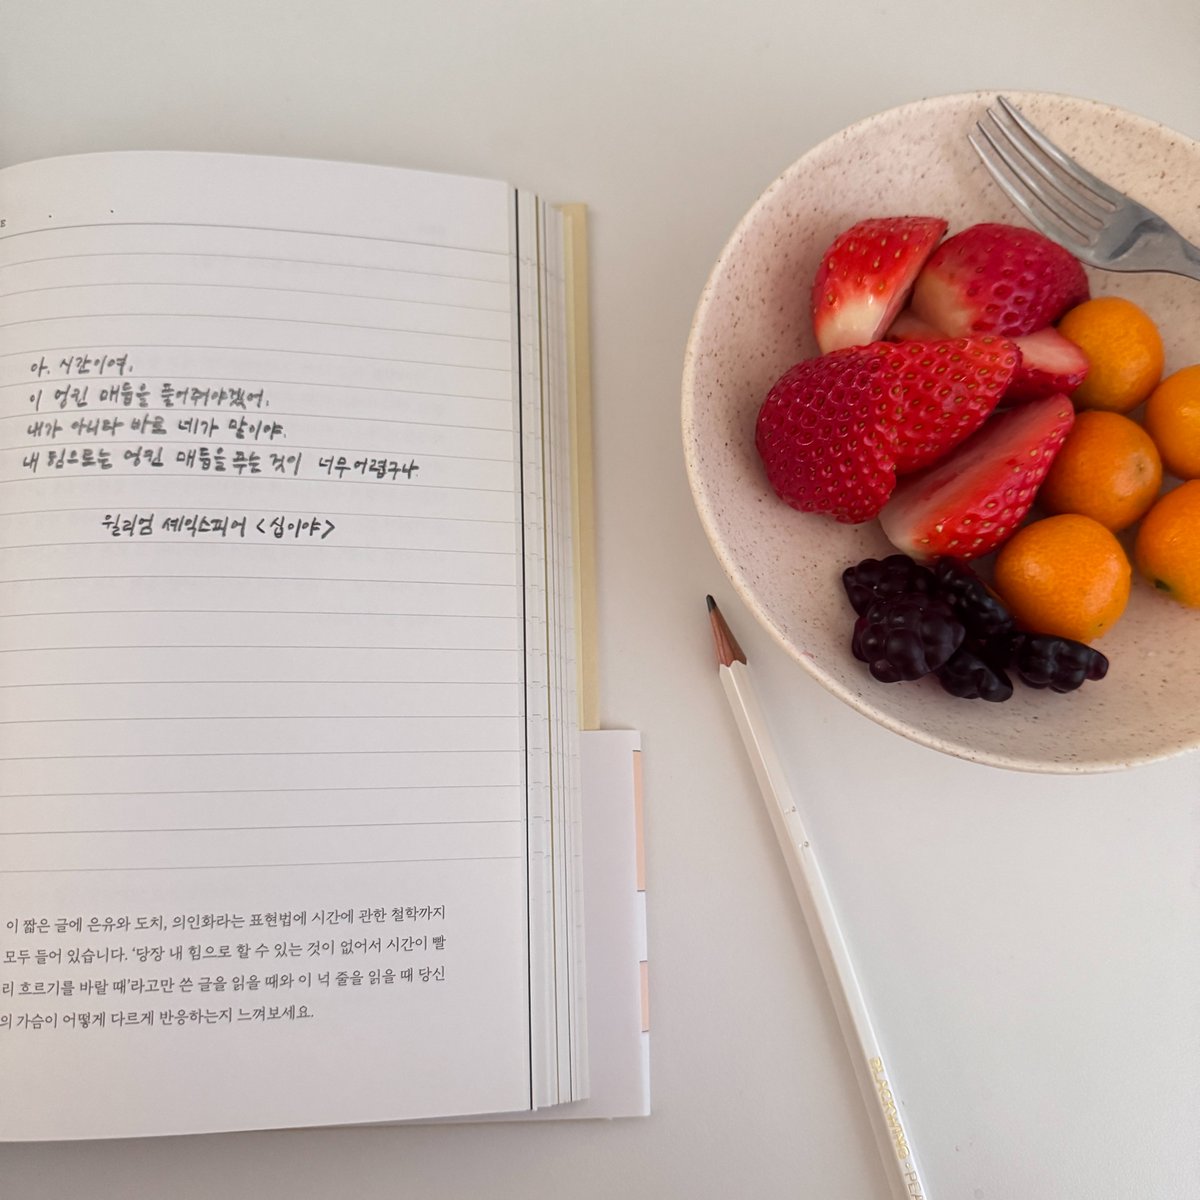 E
아, 시간이여,
이 엉킨 매듭을 풀어줘야겠어,
내가 아니라 바로 네가 말이야.
내 힘으로는 엉킨 매듭을 푸는 것이 너무 어렵구나.
윌리엄 셰익스피어 <십이야>
이 짧은 글에 은유와 도치, 의인화라는 표현법에 시간에 관한 철학까지
모두 들어 있습니다. ‘당장 내 힘으로 할 수 있는 것이 없어서 시간이 빨
리 흐르기를 바랄 때’라고만 쓴 글을 읽을 때와 이 넉 줄을 읽을 때 당신
의 가슴이 어떻게 다르게 반응하는지 느껴보세요.
BLACKWING · PEA